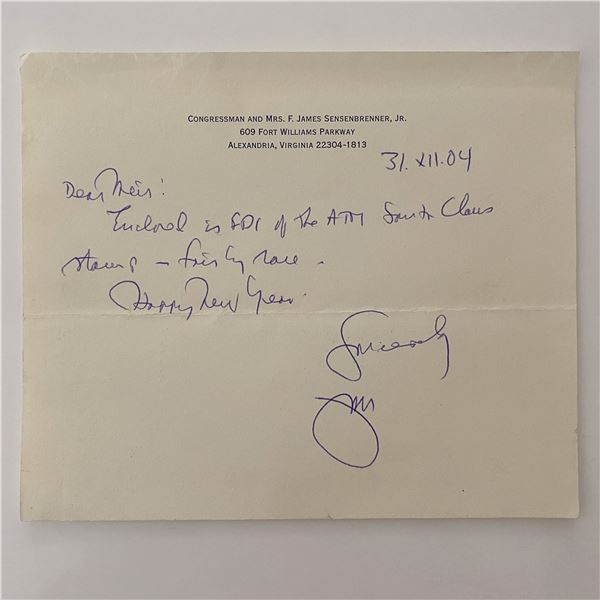 CONGRESSMAN AND MRS. F. JAMES SENSENBRENNER, JR.
609 FORT WILLIAMS PARKWAY
ALEXANDRIA, VIRGINIA 22304-1813
31.XII.04
Dear Meir:
Enclosed is of the ATM Santa Claus
stamp – fairly rare.
Happy New Year.
Sincerely
Jim